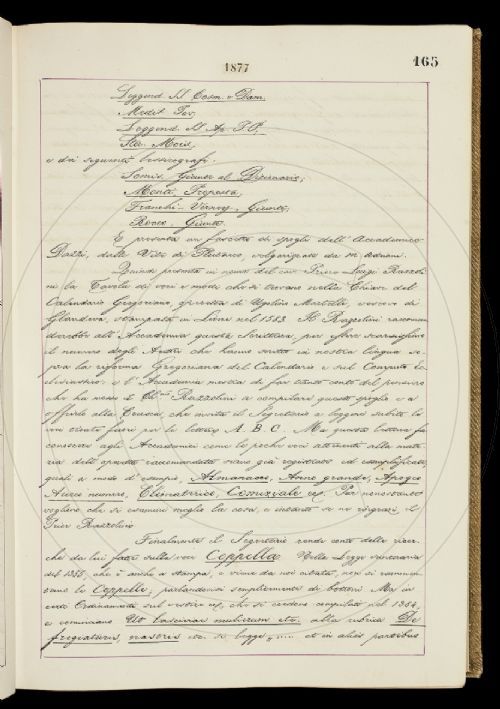 1877
165
Leggend. SS. Cosm. e Dam.
Medit. Pov.
Leggend. S. Ap. J. P.
Stor. Mois.
e dai seguenti lessicografi:
Somis, Giunte al Dizionario;
Monti, Proposta,
Franchi-Verney, Giunte;
Rocco, Giunte.
E presenta un fascetto di spogli dell'Accademico
Dazzi, dalle Vite di Plutarco, volgarizzate da M. Adriani.
Quindi presenta in nome del cav. Priore Luigi Razzoli-
ni la Tavola di voci e modi che si trovano nella Chiave del
Calendario Gregoriano, operetta di Ugolino Martelli, vescovo di
Glandeva, stampata in Lione nel 1583. Il Razzolini raccoman-
derebbe all'Accademia questa Scrittura, per essere scarsissimo
il numero degli Autori che hanno scritto in nostra lingua so-
pra la riforma Gregoriana del Calendario e sul Computo Ec-
clesiastico: e l'Accademia mostra di far tanto conto del pensiero
che ha messo il Razzolini a compilare questo spoglio e a
offrirlo alla Crusca, che invita il Segretario a leggere subito le
voci citate fuori per le lettere A. B. C. Ma questa lettura fa
conoscere agli Accademici come le poche voci attenenti alla mate-
ria dell'opuscolo raccomandato siano già registrate ed esemplificate,
quali a modo d'esempio, Almanacco, Anno grande, Apogeo
Aureo numero, Climaterico, Comunale ec. Pur nonostante
vogliono che si esamini meglio la cosa, e intanto se ne ringrazi il
Prior Razzolini.
Finalmente il Segretario rende conto delle ricer-
che da lui fatte sulla voce Coppella. Nella Legge suntuaria
del 1355, che è anche a stampa, e viene da noi citata, non si rammen-
tano le Coppelle, parlandovisi semplicemente di bottoni. Ma in
certe Ordinamenta sul vestire ec, che si credono compilati nel 1384,
e cominciano Ut lascivias mulierum etc. alla rubrica De
fregiaturis, nastris etc. si legge „..... et in aliis partibus